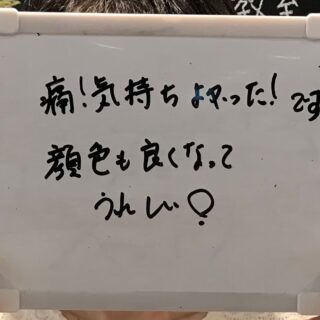 教室
痛!気持ちよかった!です
顔色も良くなって
うれしい